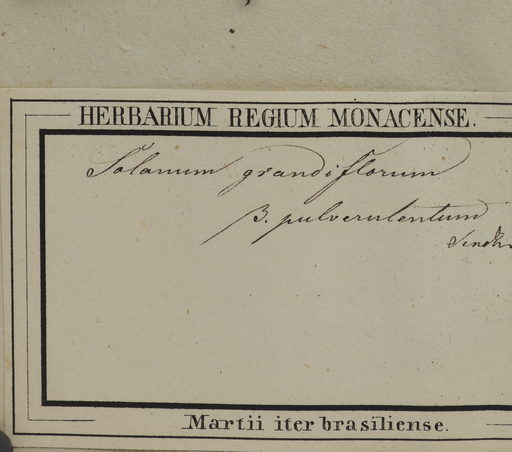 HERBARIUM REGIUM MONACENSE.
Solanum grandiflorum
β. pulverulentum
Sendtn
Martii iter brasiliense.